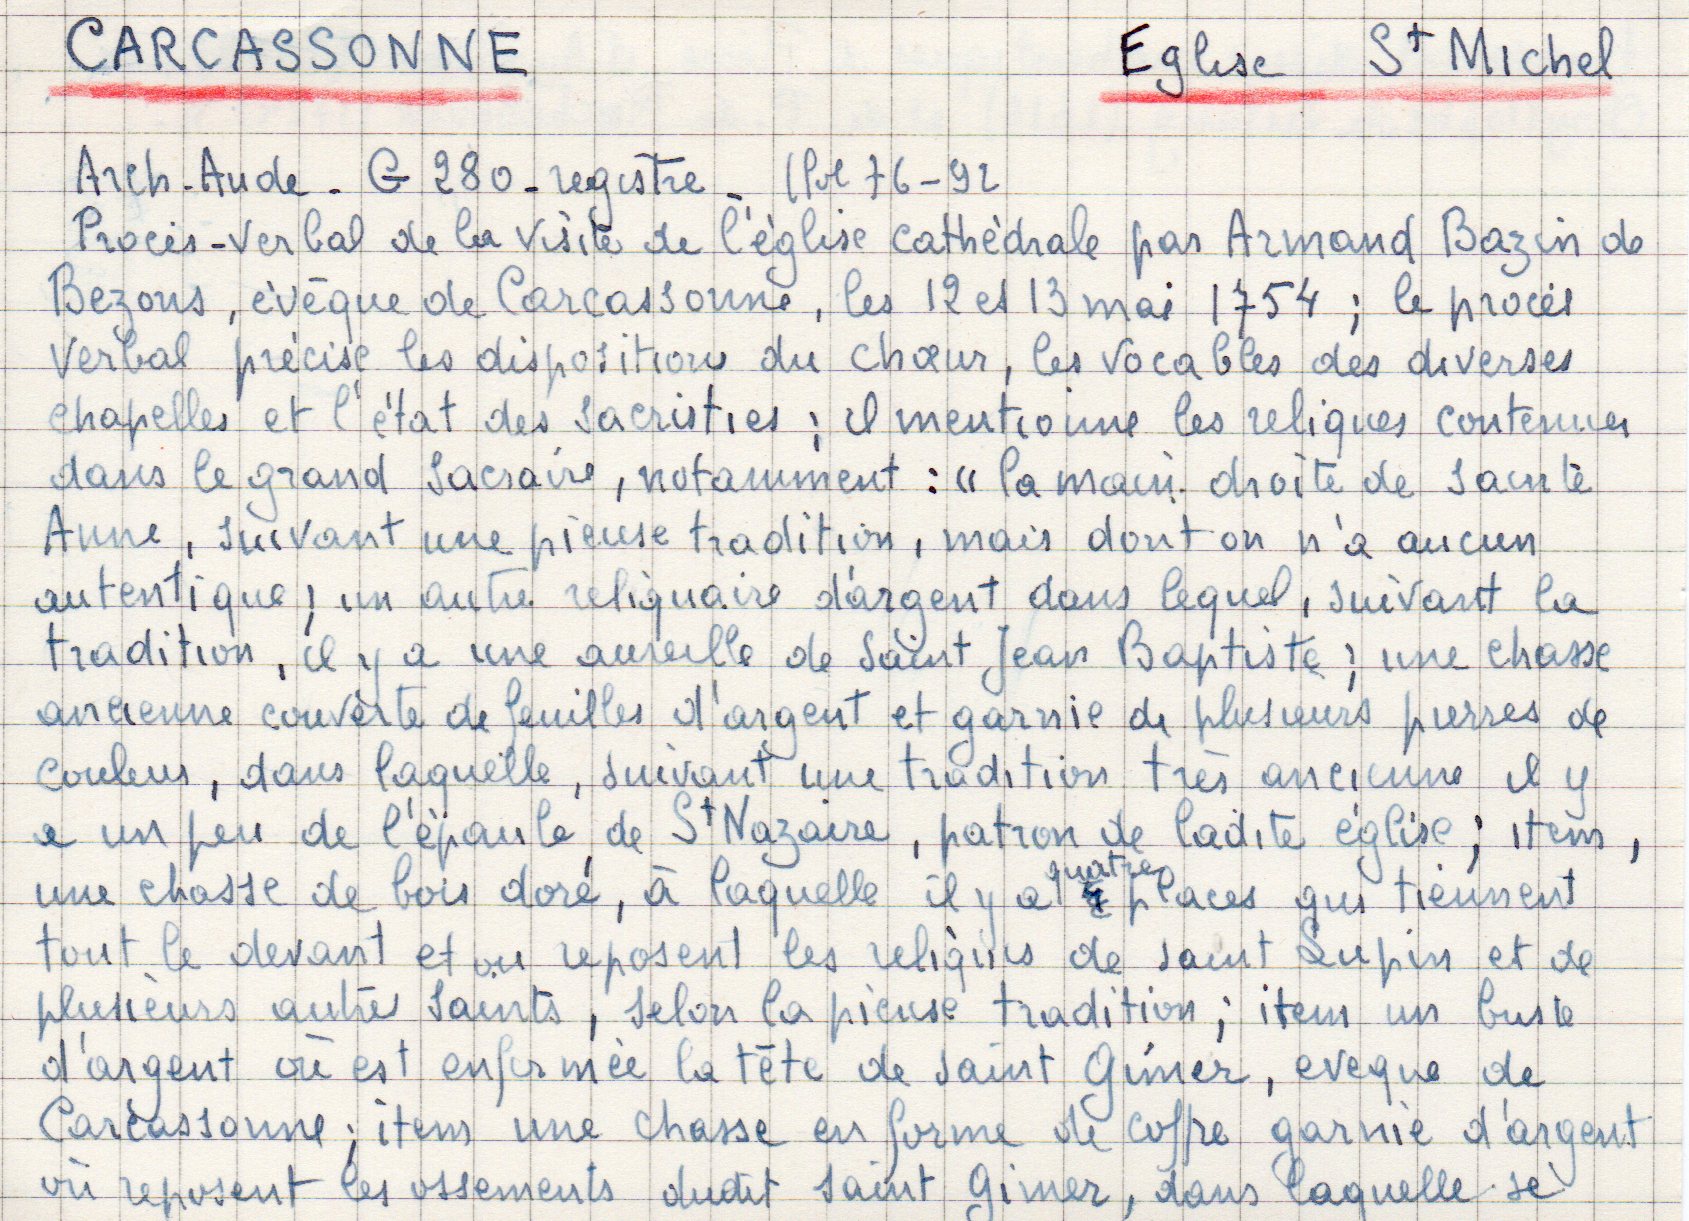 CARCASSONNE Eglise St Michel
Arch. Aude - G 280 - registre - (fol 76-92
Procès-verbal de la visite de l'église cathédrale par Armand Bazin de
Bezons, évêque de Carcassonne, les 12 et 13 mai 1754 ; le procès
verbal précise les dispositions du chœur, les vocables des diverses
chapelles et l'état des sacristies ; il mentionne les reliques contenues
dans le grand sacraire, notamment : "la main droite de sainte
Anne, suivant une pieuse tradition, mais dont on n'a aucun
autentique ; un autre reliquaire d'argent dans lequel, suivant la
tradition, il y a une aureille de saint Jean Baptiste ; une chasse
ancienne couverte de feuilles d'argent et garnie de plusieurs pierres de
couleur, dans laquelle, suivant une tradition très ancienne il y
a un peu de l'épaule de St Nazaire, patron de ladite église ; item,
une chasse de bois doré, à laquelle il y a quatre places qui tiennent
tout le devant et ou reposent les reliques de saint Lupin et de
plusieurs autres saints, selon la pieuse tradition ; item un buste
d'argent où est enfermée la tête de saint Gimer, eveque de
Carcassonne ; item une chasse en forme de coffre garnie d'argent
où reposent les ossements dudit saint Gimer, dans laquelle se